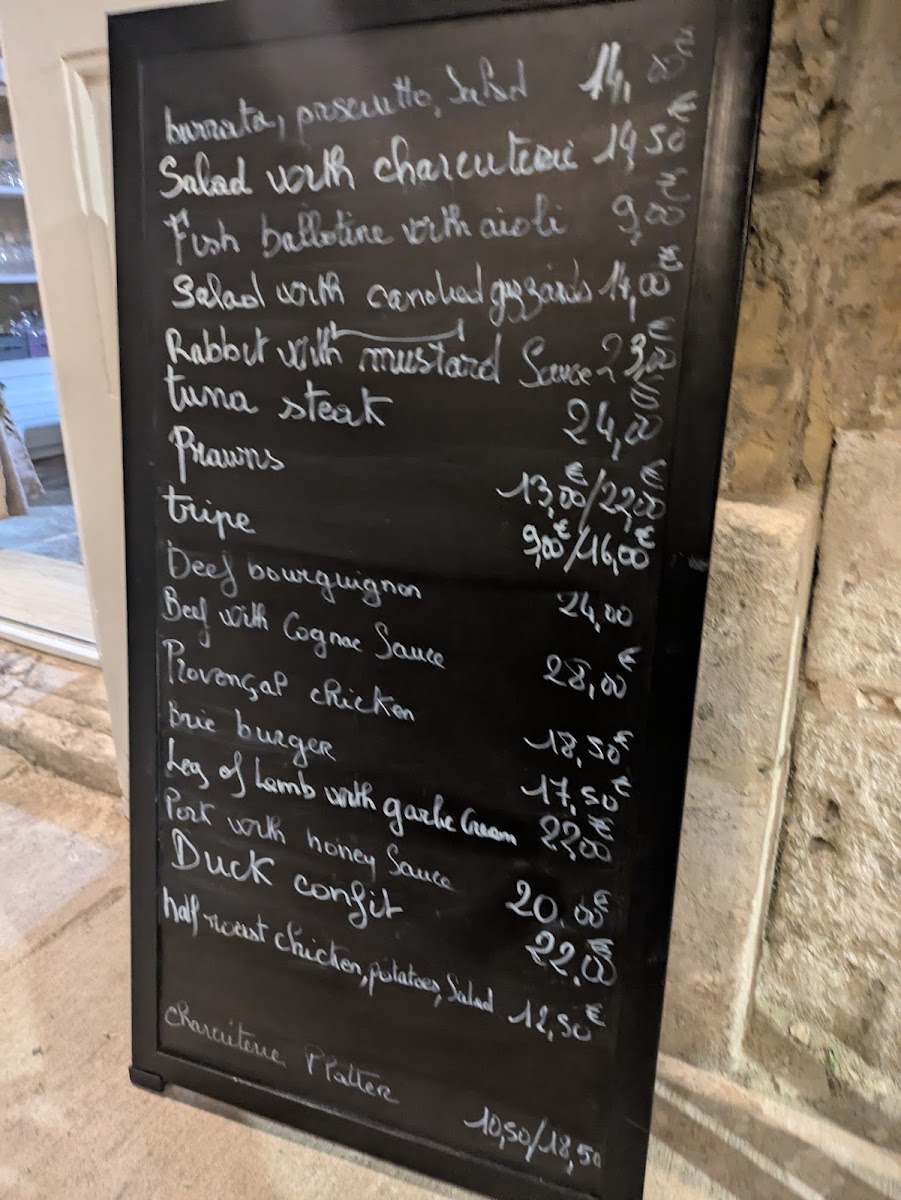 burrata, proscuitto, Salad 14,00€
Salad with charcuterie 14,50€
Fish ballotine with aioli 9,00€
Salad with candied gyzzards 14,00€
Rabbit with mustard Sauce 23,00€
tuna steak 24,00€
Prawns 13,00€/22,00€
tripe 9,00€/16,00€
Beef bourguignon 24,00
Beef with Cognac Sauce 28,00€
Provençal chicken 18,50€
Brie burger 17,50€
Leg of Lamb with garlic Cream 22,00€
Pork with honey Sauce 20.00€
Duck confit 22,00€
half roast chicken, potatoes, Salad 12,50€
Charcuterie Platter 10,50/18,50